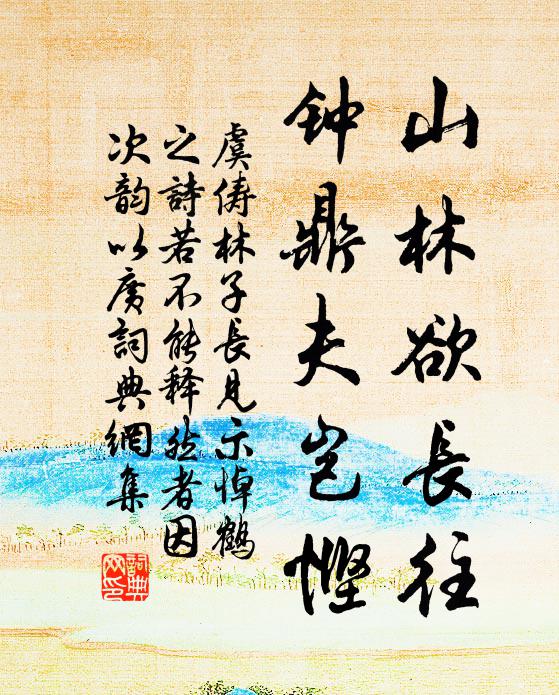 山林欲長往
钟鼎夫岂慳
虞俦林子長見示悼鶴
之詩若不能释然者因
次韵以广詞典網集
詞典
网印